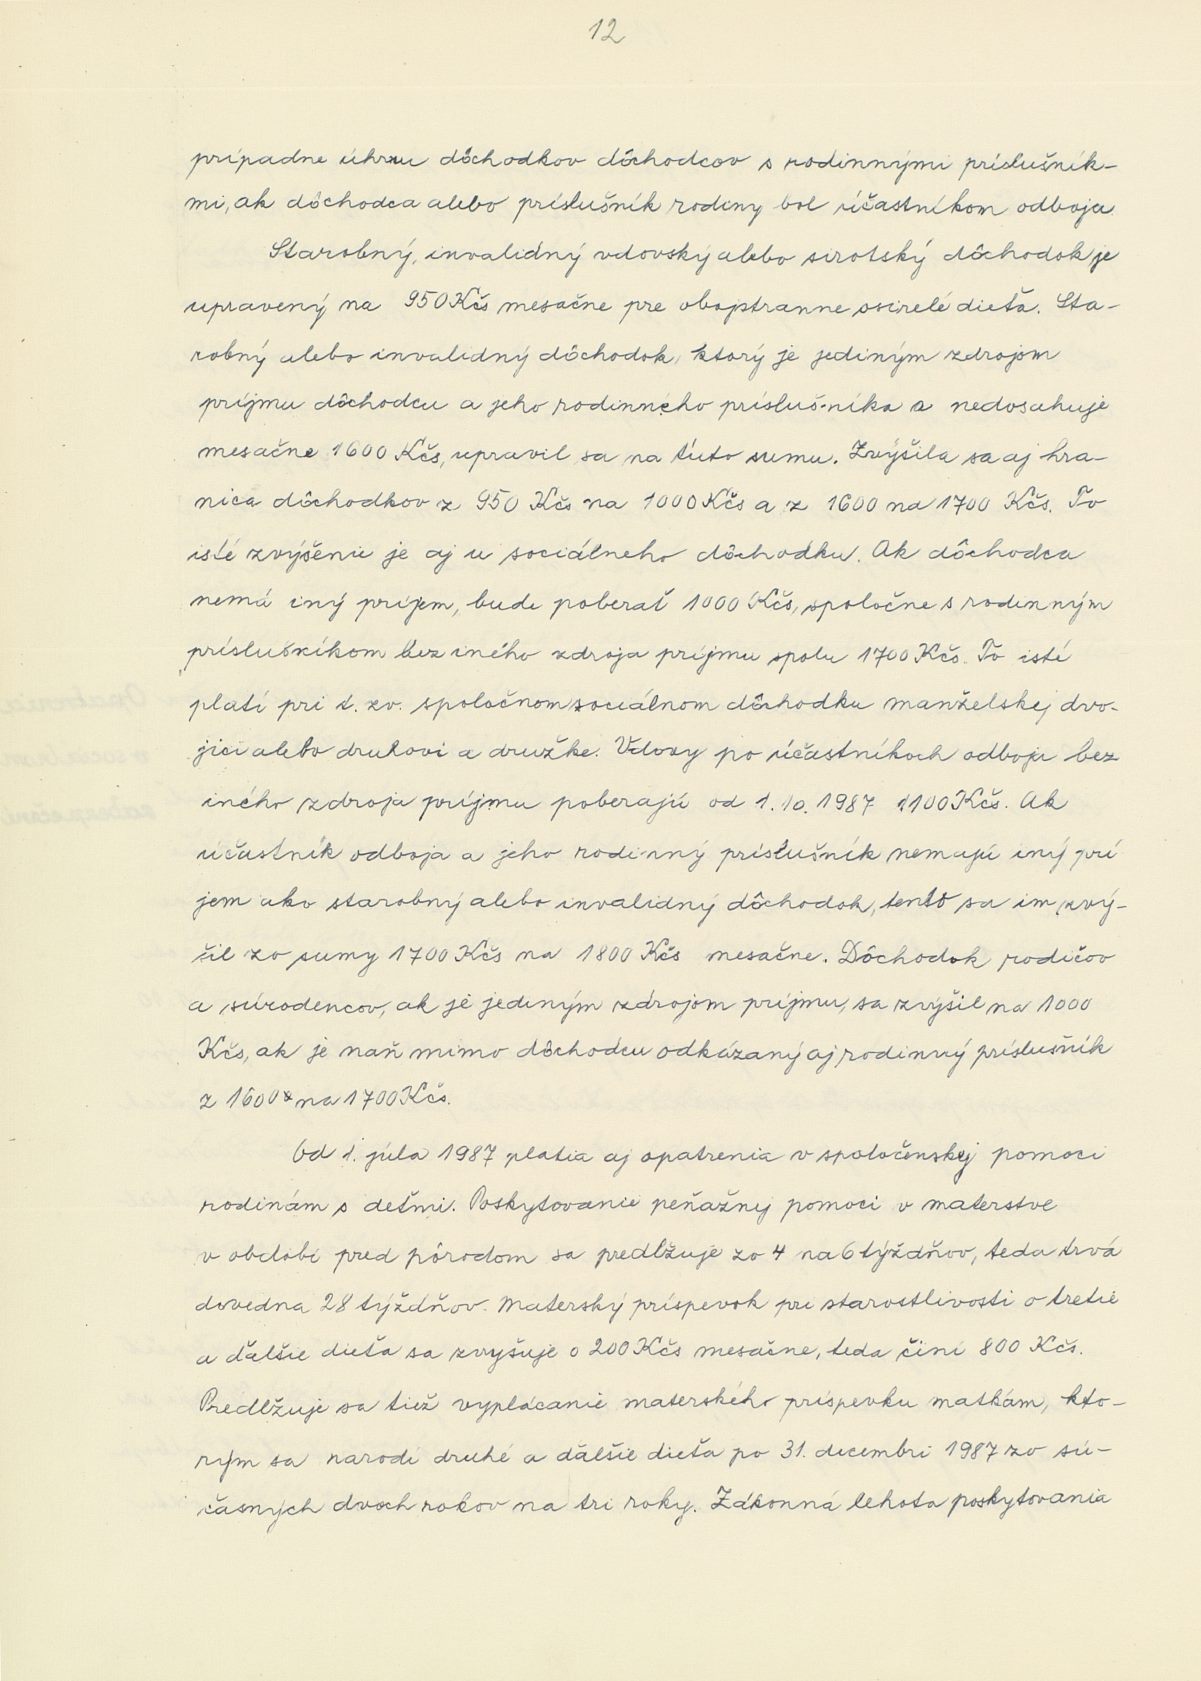 12
prípadne úhrnu dôchodkov dôchodcov s rodinnými príslušník-
mi, ak dôchodca alebo príslušník rodiny bol účastníkom odboja
Starobný, invalidný vdovský alebo sirotský dôchodok je
upravený na 950 Kčs mesačne pre obojstranne osirelé dieťa. Sta-
robný alebo invalidný dôchodok, ktorý je jediným zdrojom
príjmu dôchodcu a jeho rodinného príslušníka a nedosahuje
mesačne 1600 Kčs, upravil sa na túto sumu. Zvýšila sa aj hra-
nica dôchodkov z 950 Kčs na 1000 Kčs a z 1600 na 1700 Kčs. To
isté zvýšenie je aj u sociálneho dôchodku. Ak dôchodca
nemá iný príjem, bude poberať 1000 Kčs, spoločne s rodinným
príslušníkom bez iného zdroja príjmu spolu 1700 Kčs. To isté
platí pri t. zv. spoločnom sociálnom dôchodku manželskej dvo-
jici alebo druhovi a družke. Vdovy po účastníkoch odboja bez
iného zdroja príjmu poberajú od 1.10.1987 1100 Kčs. Ak
účastník odboja a jeho rodinný príslušník nemajú iný prí
jem ako starobný alebo invalidný dôchodok, tento sa im zvý-
šil zo sumy 1700 Kčs na 1800 Kčs mesačne. Dôchodok rodičov
a súrodencov, ak je jediným zdrojom príjmu, sa zvýšil na 1000
Kčs, ak je naň mimo dôchodcu odkázaný aj rodinný príslušník
z 1600 na 1700 Kčs.
Od 1. júla 1987 platia aj opatrenia v spoločenskej pomoci
rodinám s deťmi. Poskytovanie peňažnej pomoci v materstve
v období pred pôrodom sa predlžuje zo 4 na 6 týždňov, teda trvá
dovedna 28 týždňov. Materský príspevok pri starostlivosti o tretie
a ďalšie dieťa sa zvyšuje o 200 Kčs mesačne, teda činí 800 Kčs.
Predlžuje sa tiež vyplácanie materského príspevku matkám, kto-
rým sa narodí druhé a ďalšie dieťa po 31. decembri 1987 zo sú-
časných dvoch rokov na tri roky. Zákonná lehota poskytovania